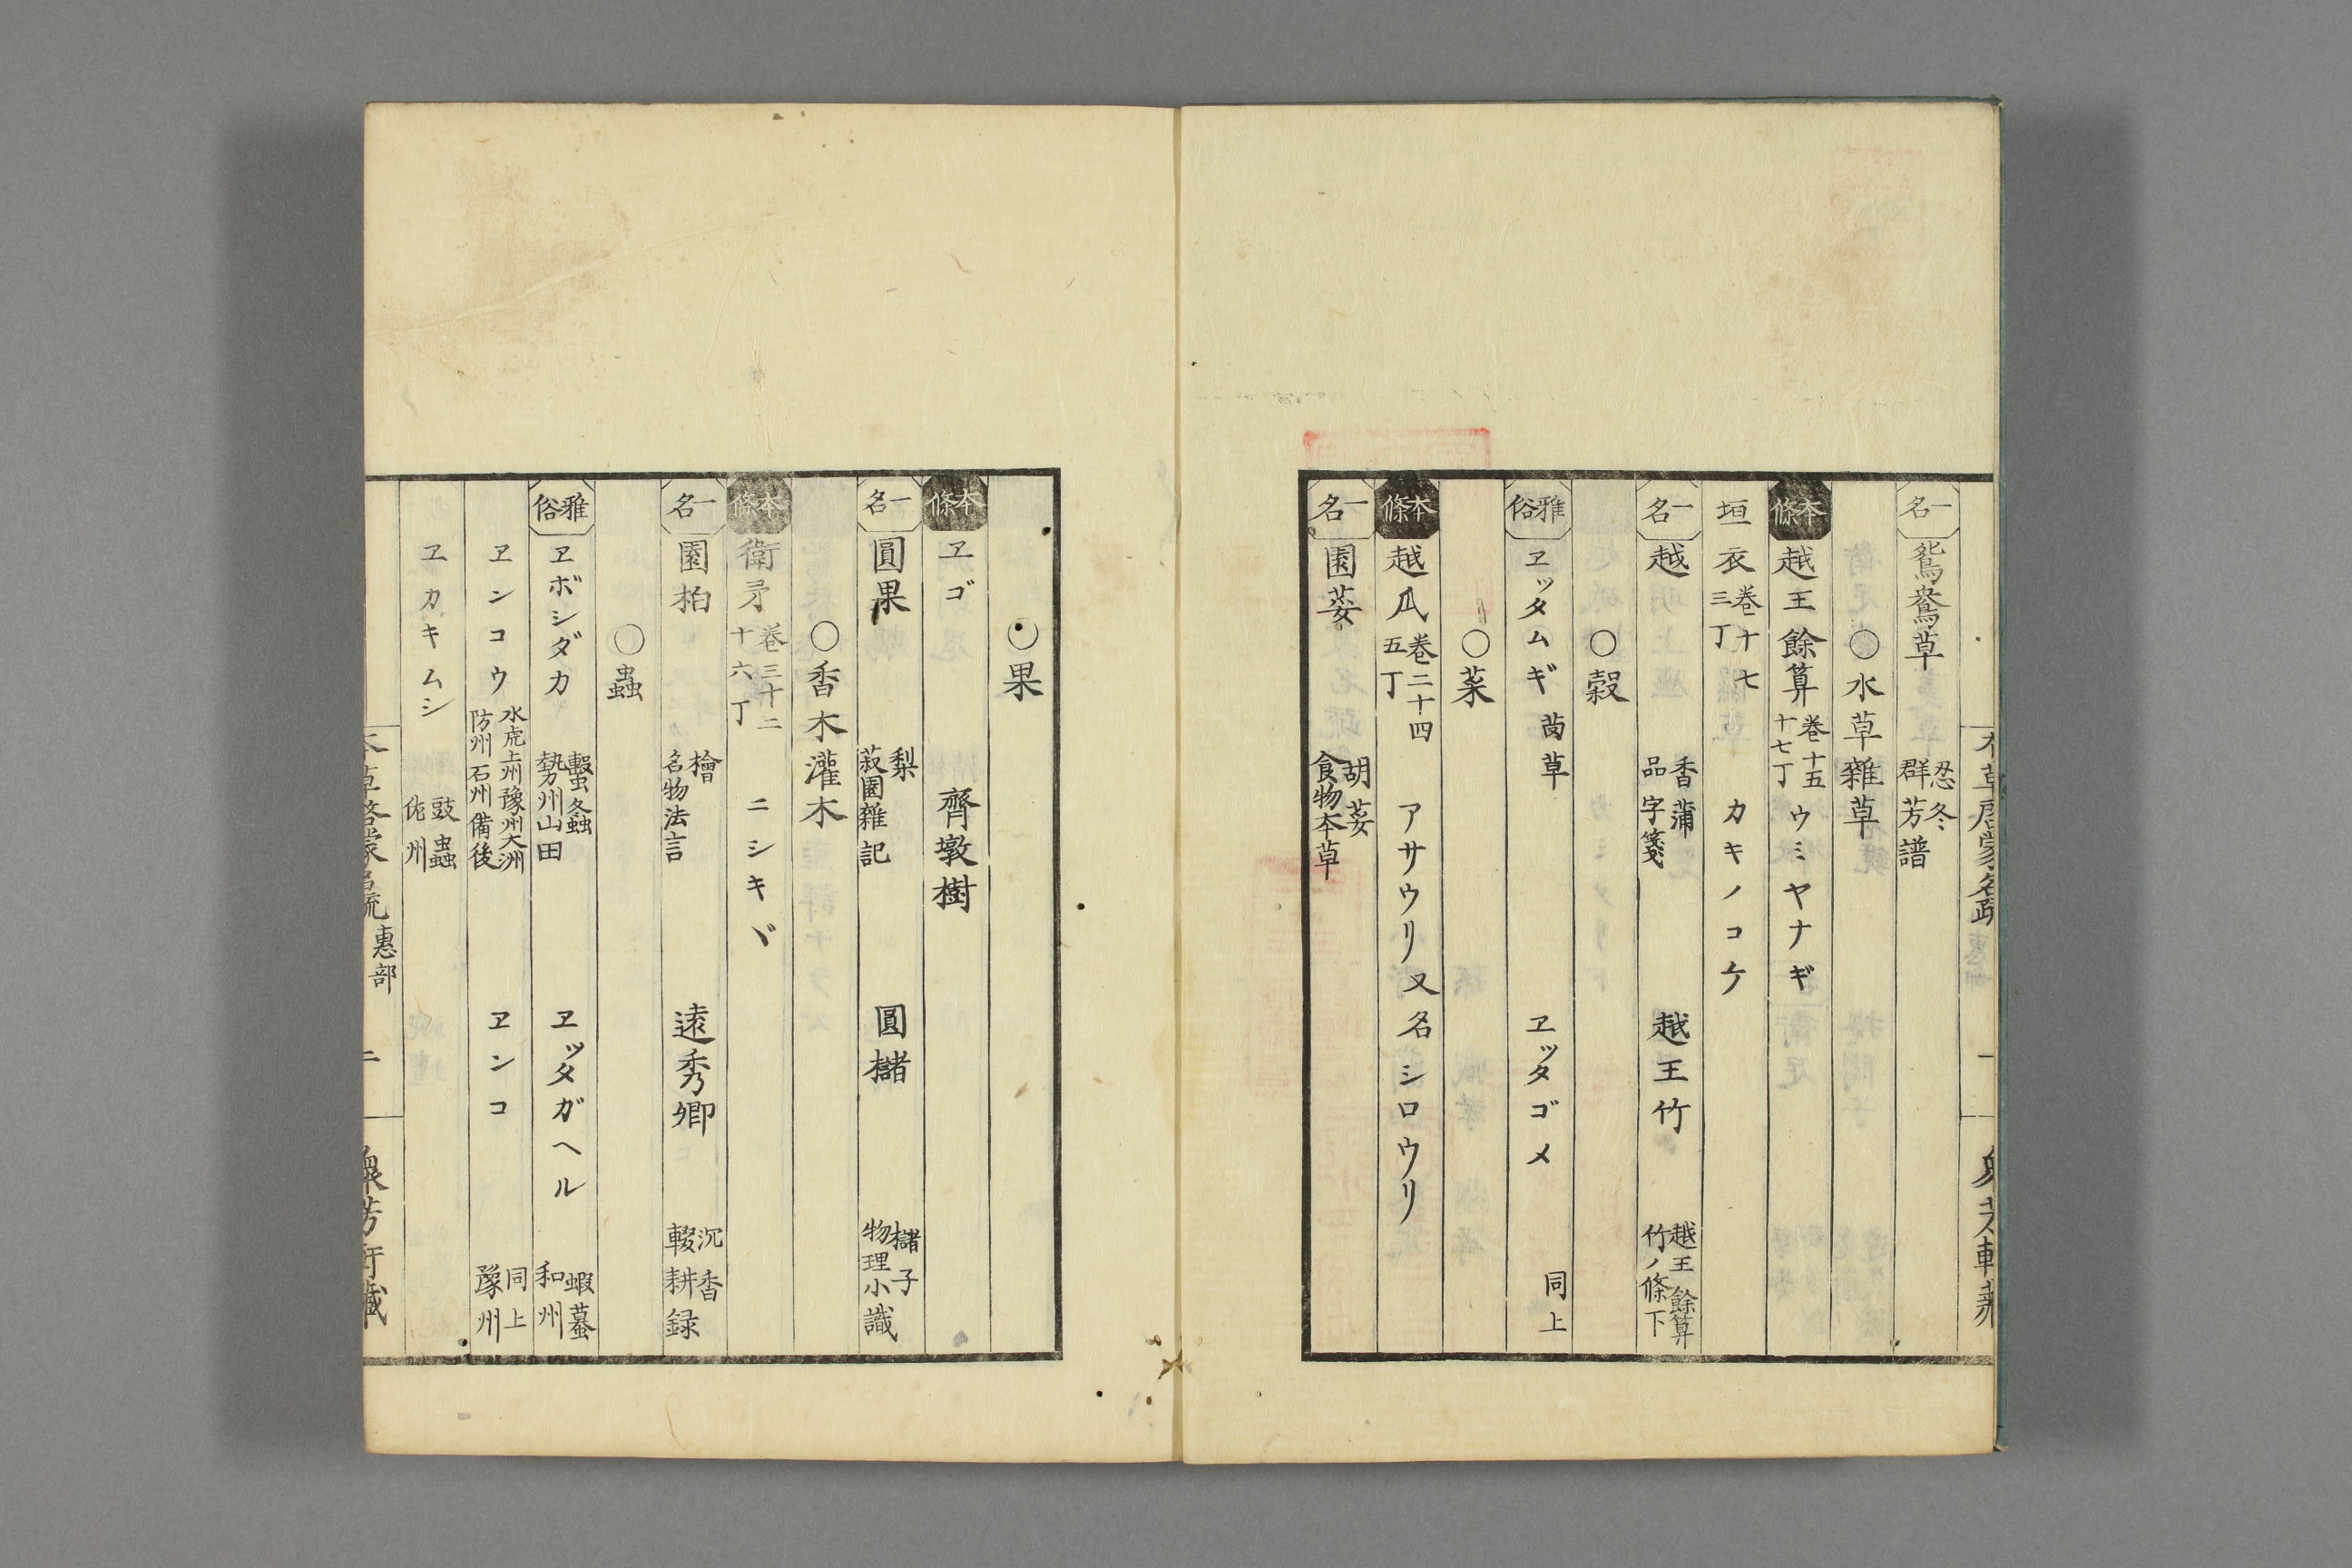 一名 鴛鴦草 忍冬 群芳譜
〇水草雜草
本條 越王餘算 巻十五 十七丁 ウミヤナギ
垣衣 巻十七 三丁 カキノコケ
一名 越 香蒲 品字箋 越王竹 越王餘算 竹ノ條下
〇穀
雅俗 ヱッタムギ 𦭷草 ヱッタゴメ 同上
〇菜
本條 越瓜 巻二十四 五丁 アサウリ 又名シロウリ
一名 園荽 胡荽 食物本草
〇果
本條 ヱゴ 齊墩樹
一名 圓果 梨 菽園雜記 圓櫧 櫧子 物理小識
〇香木灌木
本條 衛矛 巻三十二 十六丁 ニシキヾ
一名 園柏 檜 名物法言 遠秀卿 沉香 輟耕録
〇蟲
雅俗 ヱボシダカ 螽 勢州山田 ヱッタガヘル 蝦蟇 和州
ヱンコウ 水虎 上州 豫州大洲 防州 石州 備後 ヱンコ 同上 豫州
ヱカキムシ 豉蟲 佐州
本草啓蒙名疏 惠部 二 衆芳軒藏